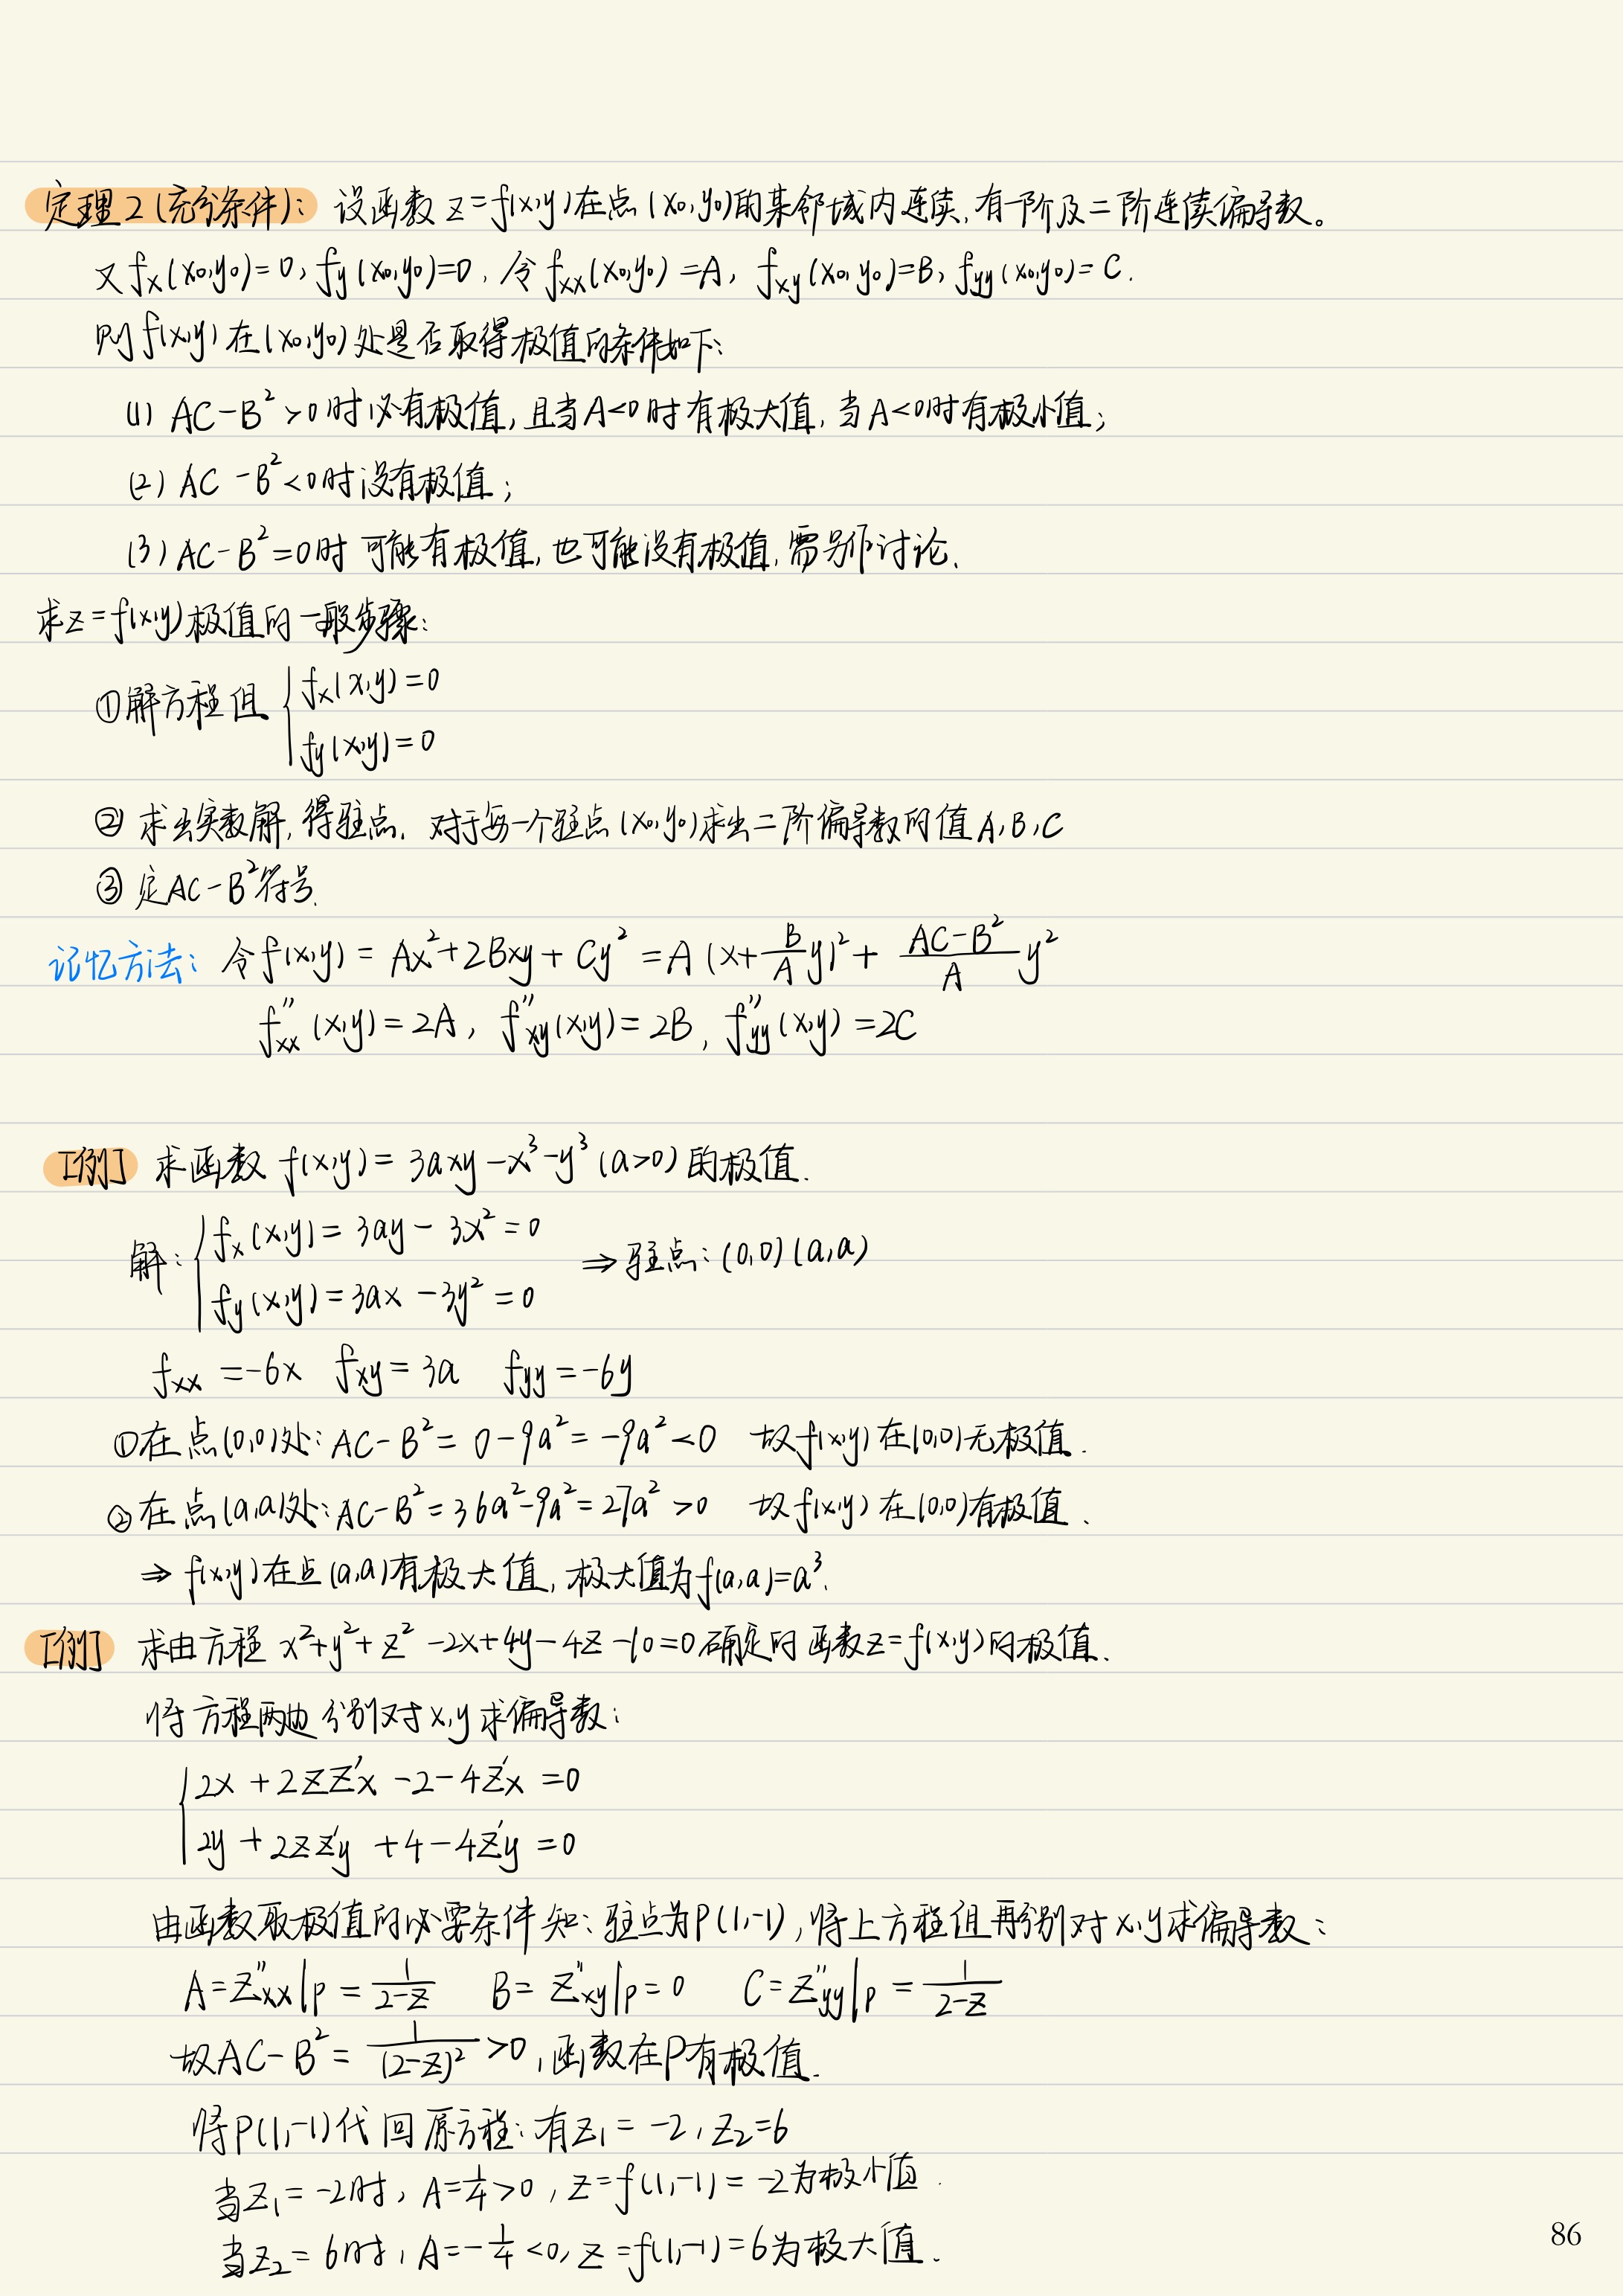 定理2(充分条件): 设函数 z=f(x,y)在点(x₀,y₀)的某邻域内连续,有一阶及二阶连续偏导数。
又 fx(x₀,y₀)=0, fy(x₀,y₀)=0, 令 fxx(x₀,y₀)=A, fxy(x₀,y₀)=B, fyy(x₀,y₀)=C.
则 f(x,y) 在(x₀,y₀)处是否取得极值的条件如下:
(1) AC-B²>0时必有极值,且当A<0时有极大值,当A<0时有极小值;
(2) AC-B²<0时没有极值;
(3) AC-B²=0时 可能有极值,也可能没有极值,需另作讨论.
求z=f(x,y)极值的一般步骤:
①解方程组 { fx(x,y)=0
fy(x,y)=0
② 求出实数解,得驻点. 对于每一个驻点(x₀,y₀)求出二阶偏导数的值A,B,C
③ 定AC-B²符号.
记忆方法: 令f(x,y) = Ax²+2Bxy+Cy² = A(x+B/A y)² + (AC-B²)/A y²
f''xx(x,y)=2A, f''xy(x,y)=2B, f''yy(x,y)=2C
[例] 求函数 f(x,y)=3axy-x³-y³(a>0)的极值.
解: { fx(x,y)=3ay-3x²=0 ⇒驻点:(0,0)(a,a)
fy(x,y)=3ax-3y²=0
fxx=-6x fxy=3a fyy=-6y
①在点(0,0)处: AC-B²=0-9a²=-9a²<0 故f(x,y)在(0,0)无极值.
②在点(a,a)处: AC-B²=36a²-9a²=27a²>0 故f(x,y)在(0,0)有极值.
⇒ f(x,y)在点(a,a)有极大值,极大值为f(a,a)=a³.
[例] 求由方程 x²+y²+z²-2x+4y-4z-10=0确定的函数z=f(x,y)的极值.
将方程两边分别对x,y求偏导数:
{ 2x+2zz'x-2-4z'x=0
2y+2zz'y+4-4z'y=0
由函数取极值的必要条件知:驻点为P(1,-1),将上方程组再分别对x,y求偏导数:
A=z''xx|p=1/(2-z) B=z''xy|p=0 C=z''yy|p=1/(2-z)
故AC-B²=1/(2-z)²>0,函数在P有极值.
将P(1,-1)代回原方程:有z₁=-2,z₂=6
当z₁=-2时,A=1/4>0,z=f(1,-1)=-2为极小值.
当z₂=6时,A=-1/4<0,z=f(1,-1)=6为极大值.
86